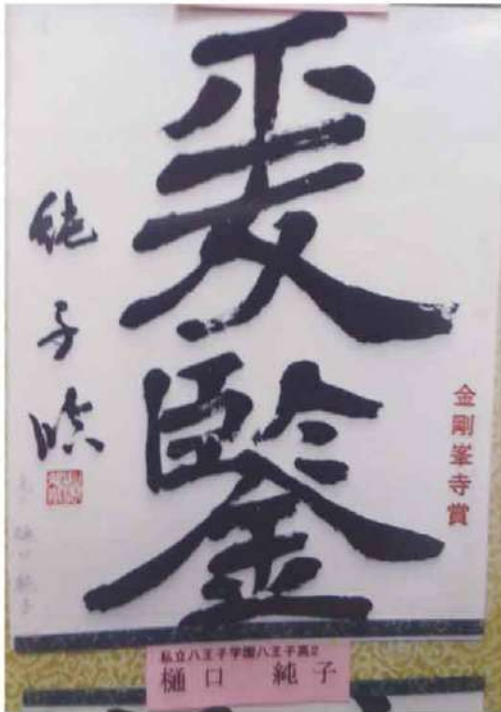 爰鑒
純子臨
金剛峯寺賞
樋口 純子
私立八王子学園八王子高2
樋口 純子